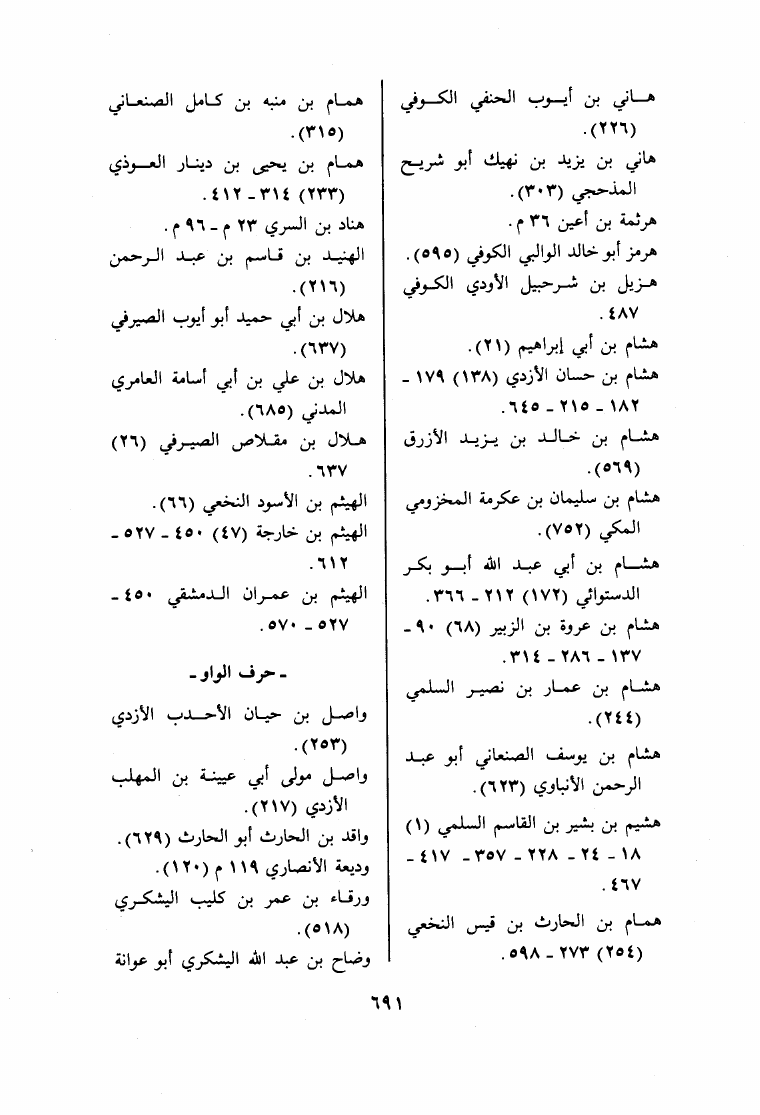 هـاني بن أيـوب الحنفي الكـوفي
(٢٢٦).
هاني بن يزيد بن نهيك أبو شريح
المذحجي (٣٠٣).
هرثمة بن أعين ٣٦ م.
هرمز أبو خالد الوالبي الكوفي (٥٩٥).
هزيل بن شرحبيل الأودي الكوفي
٤٨٧.
هشام بن أبي إبراهيم (٢١).
هشام بن حسان الأزدي (١٣٨) ١٧٩ -
١٨٢ - ٢١٥ - ٦٤٥.
هشام بن خالد بن يزيد الأزرق
(٥٦٩).
هشام بن سليمان بن عكرمة المخزومي
المكي (٧٥٢).
هشام بن أبي عبد الله أبو بكر
الدستوائي (١٧٢) ٢١٢ - ٣٦٦.
هشام بن عروة بن الزبير (٦٨) ٩٠ -
١٣٧ - ٢٨٦ - ٣١٤.
هشام بن عمار بن نصير السلمي
(٢٤٤).
هشام بن يوسف الصنعاني أبو عبد
الرحمن الأنباوي (٦٢٣).
هشيم بن بشير بن القاسم السلمي (١)
١٨ - ٢٤ - ٢٢٨ - ٣٥٧ - ٤١٧ -
٤٦٧.
همام بن الحارث بن قيس النخعي
(٢٥٤) ٢٧٣ - ٥٩٨.
همام بن منبه بن كامل الصنعاني
(٣١٥).
همام بن يحيى بن دينار العوذي
(٢٣٣) ٣١٤ - ٤١٢.
هناد بن السري ٢٣ م - ٩٦ م.
الهنيد بن قاسم بن عبد الرحمن
(٢١٦).
هلال بن أبي حميد أبو أيوب الصيرفي
(٦٣٧).
هلال بن علي بن أبي أسامة العامري
المدني (٦٨٥).
هلال بن مقلاص الصيرفي (٢٦)
٦٣٧.
الهيثم بن الأسود النخعي (٦٦).
الهيثم بن خارجة (٤٧) ٤٥٠ - ٥٢٧ -
٦١٢.
الهيثم بن عمران الدمشقي ٤٥٠ -
٥٢٧ - ٥٧٠.
- حرف الواو -
واصل بن حيان الأحدب الأزدي
(٢٥٣).
واصل مولى أبي عيينة بن المهلب
الأزدي (٢١٧).
واقد بن الحارث أبو الحارث (٦٢٩).
وديعة الأنصاري ١١٩ م (١٢٠).
ورقاء بن عمر بن كليب اليشكري
(٥١٨).
وضاح بن عبد الله اليشكري أبو عوانة
٦٩١